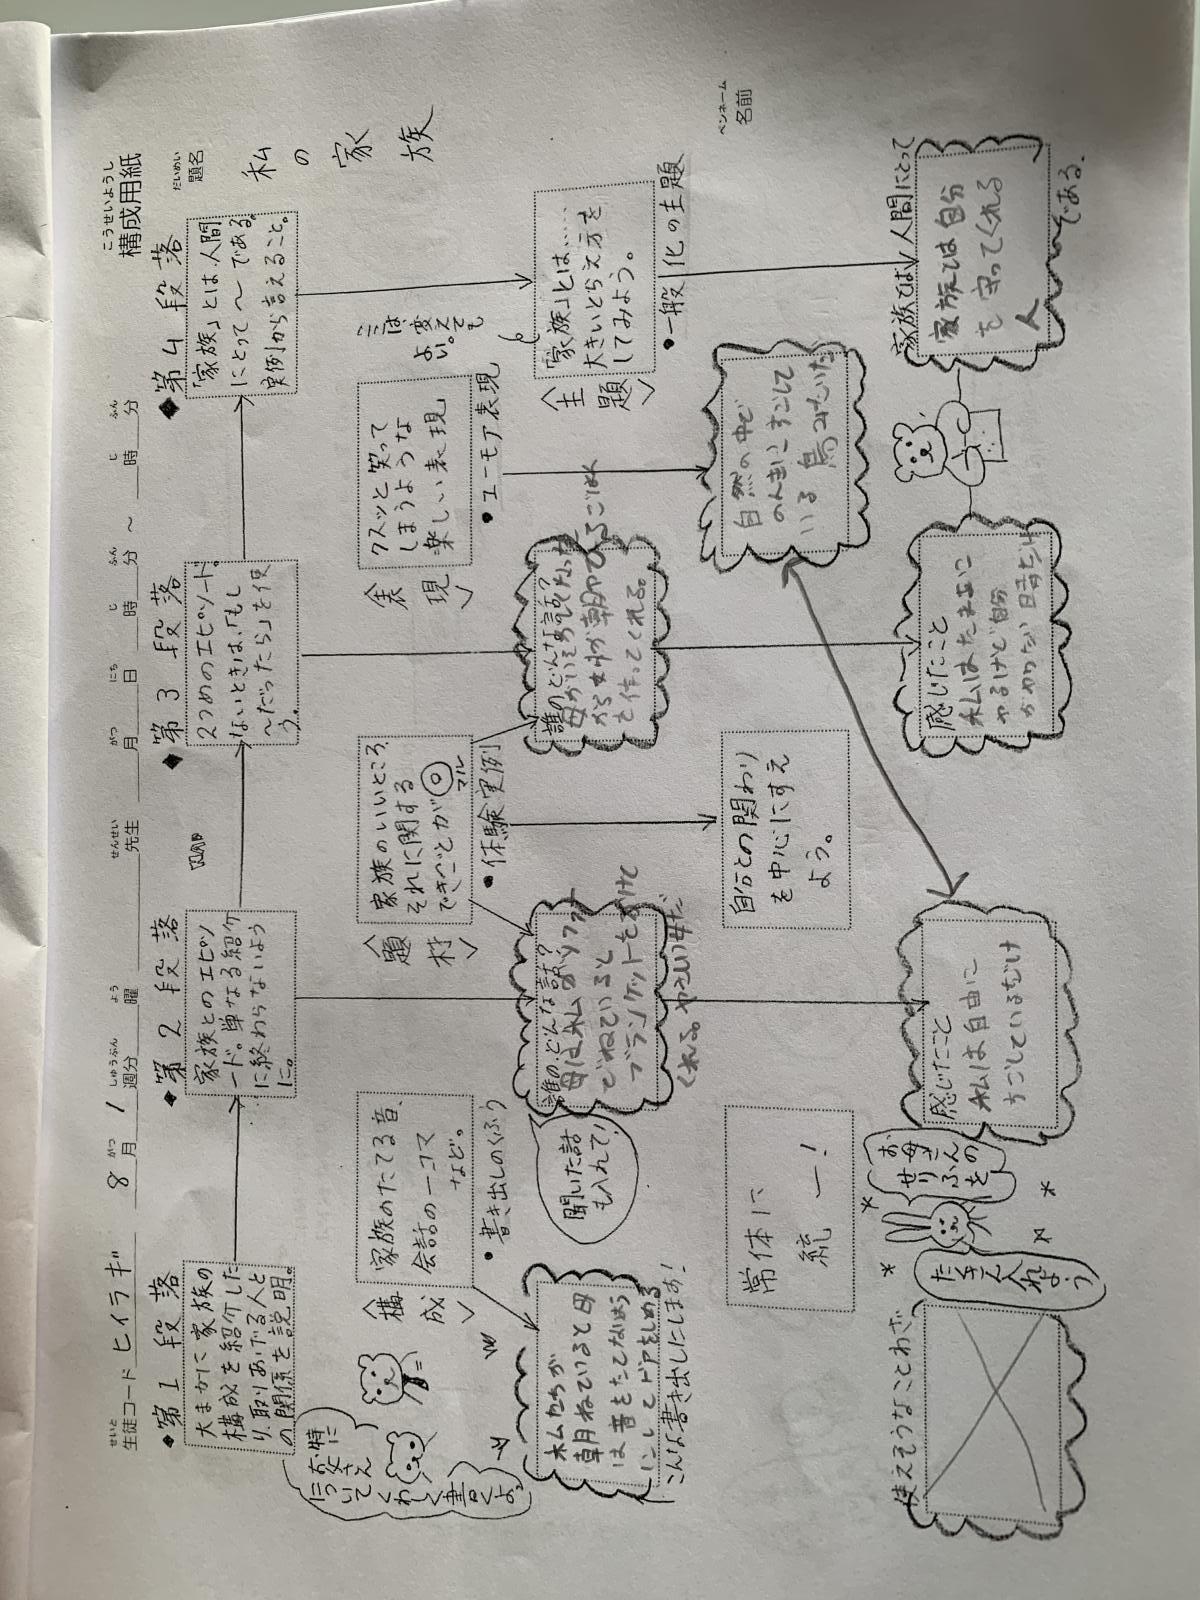 こうせいようし
構成用紙
だいめい
題名
私の家族
ペンネーム
名前
せいと
生徒コード ヒイラギ
がつ しゅうぶん よう
8月 1週分 曜
せんせい
先生
がつ にち じ ふん じ ふん
月 日 時 分 ～ 時 分
◆第1段落
大まかに家族の
構成を紹介した
り、取りあげる人と
の関係を説明。
◆第2段落
家族とのエピソ
ード。単なる紹介
に終わらないよう
に。
◆第3段落
2つめのエピソード。
ないときは、「もし
～だったら」を使
う。
◆第4段落
「家族」とは人間
にとって～である。
実例から言えること。
特に
お父さん
について
くわしく
書くよ
〈構成〉
家族のたてる音、
会話の一コマ
など。
・書き出しのくふう
〈題材〉
家族のいいところ、
それに関する
できごとが◎
マル
・体験実例
〈表現〉
クスッと笑って
しまうような
楽しい表現
・ユーモア表現
ここは、
変えても
よい。
〈主題〉
「家族」とは……
大きいとらえ方を
してみよう。
・一般化の主題
私たちが
朝ねていると母
は音をたてないよう
にしてドアをしめる
こんな書き出しにします!
聞いた話
も入れて!
誰の、どんな話?
母は私がソファ
でねていると
ブランケットをかけて
くれる。やさしい母だ
誰の、どんな話?
母が
姉が朝やひるごはん
を作ってくれる。
常体に
統一!
自分との関わり
を中心にすえ
よう。
自然の中で
のんきにすごして
いる鳥みたいな
使えそうなことわざ
お母さんの
せりふを
たくさん入れよう
感じたこと
私は自由に
すごしているだけ
感じたこと
私はたまに
やるけど自分
家族とは人間にとって
家族とは自分
を守ってくれる
人
である。